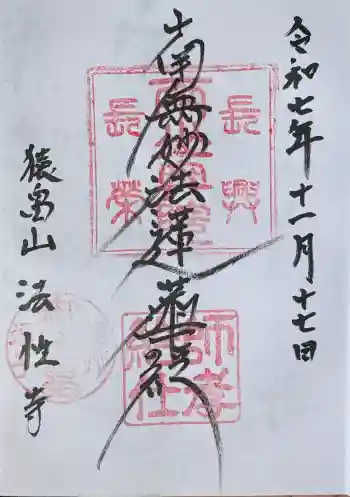 令和七年十一月十七日
南無妙法蓮華経
猿畠山 法性寺
長興
長榮
師孝